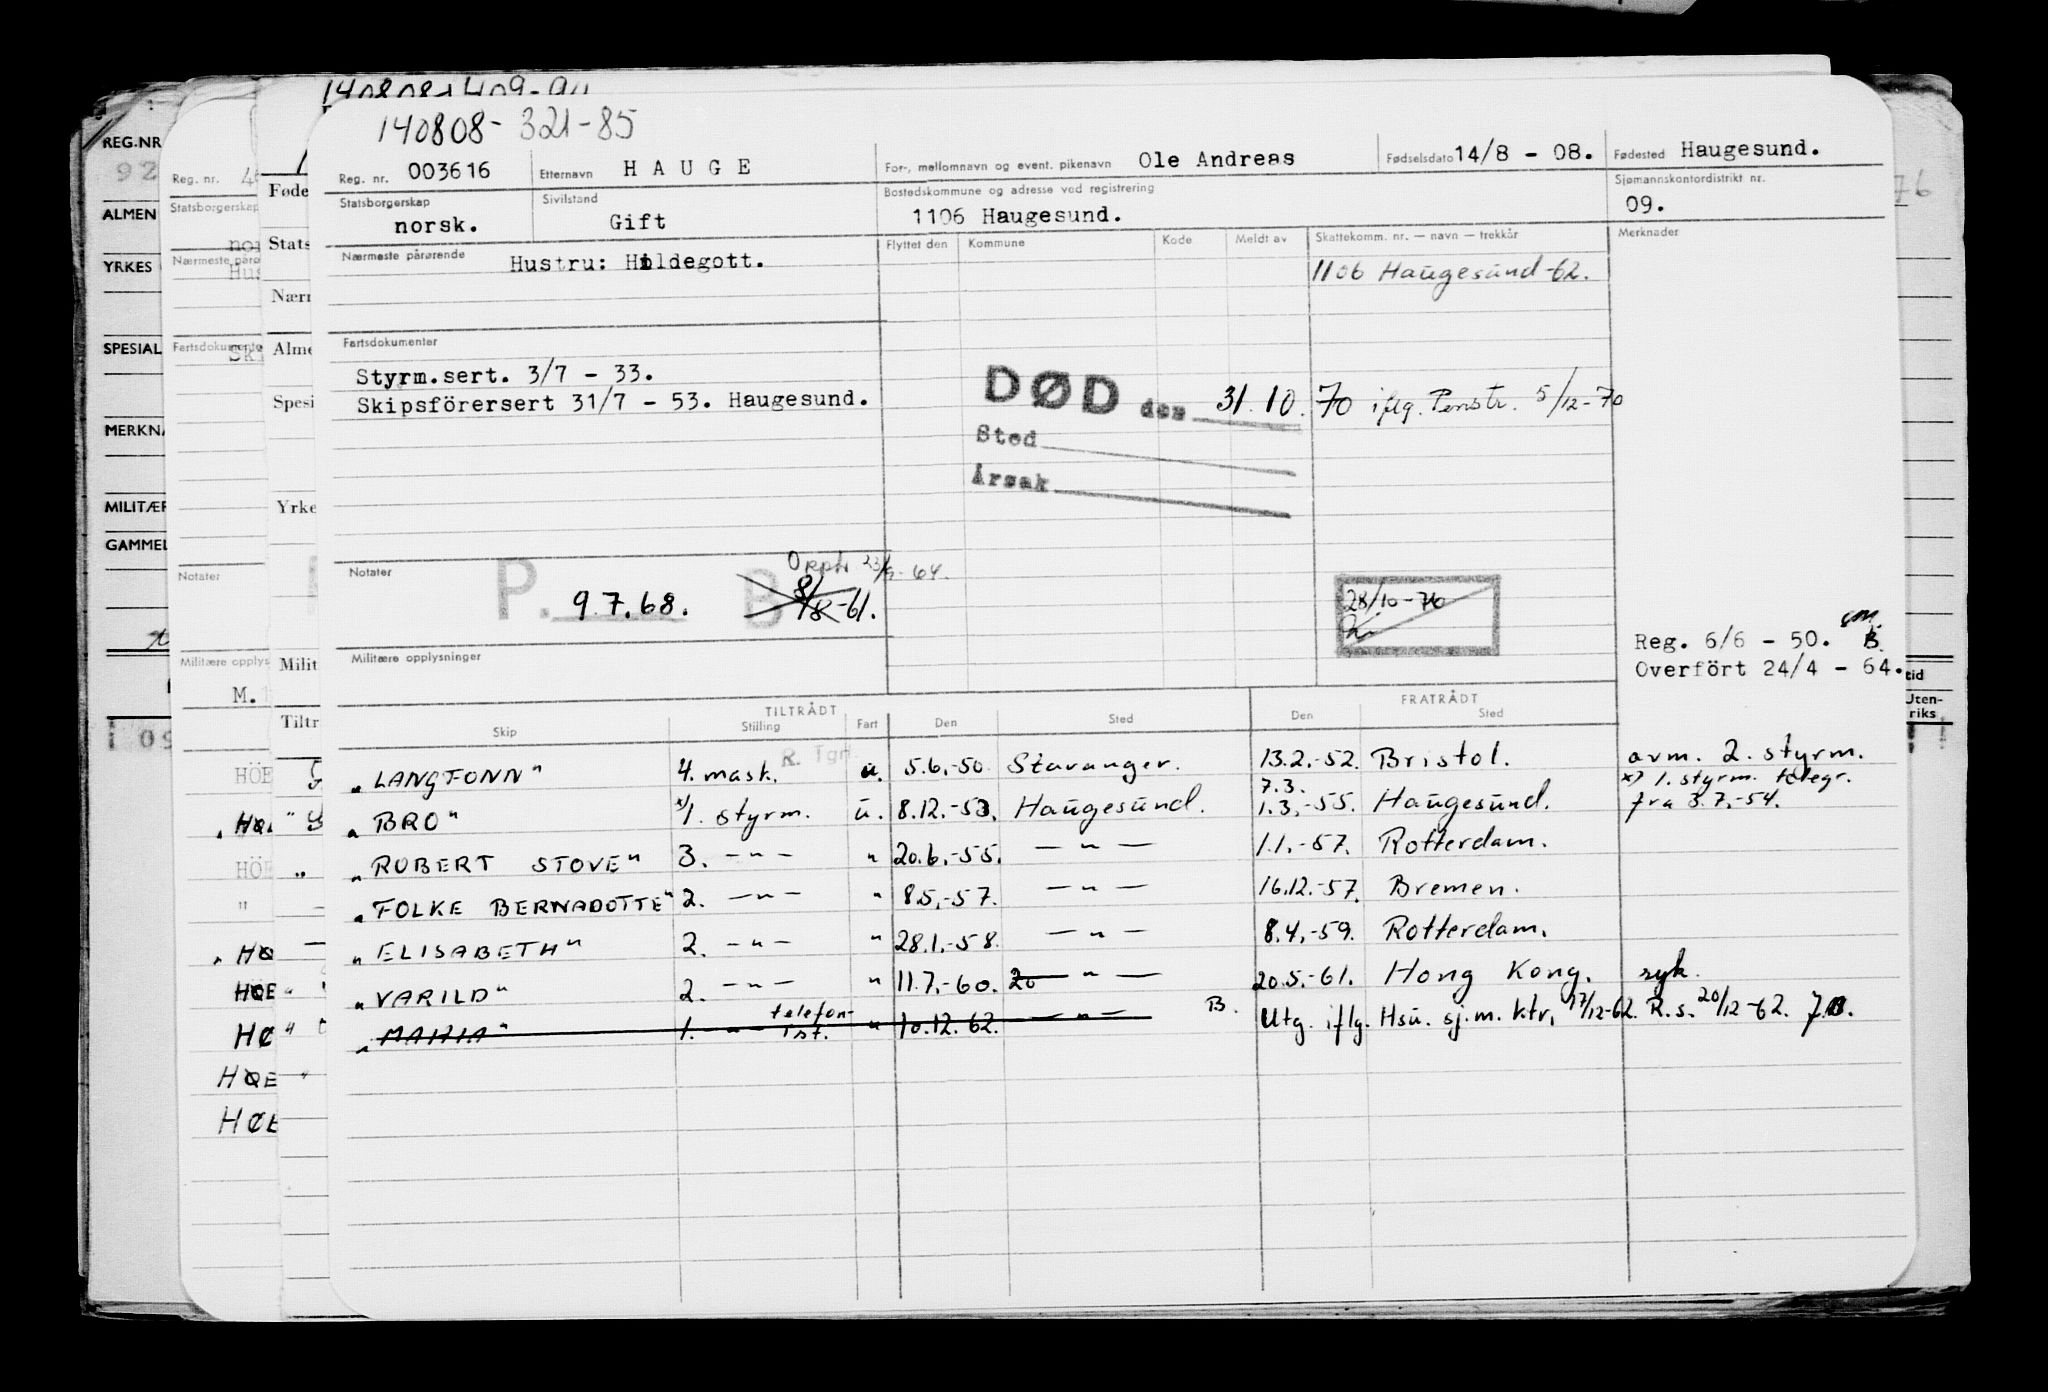 140808-321-85
Reg. nr. 003616 Etternavn HAUGE For-, mellomnavn og event. pikenavn Ole Andreas Fødselsdato 14/8 - 08. Fødested Haugesund.
Statsborgerskap norsk. Sivilstand Gift Bostedskommune og adresse ved registrering 1106 Haugesund. Sjømannskontordistrikt nr. 09.
Nærmeste pårørende Hustru: Hildegott. Flyttet den Kommune Kode Meldt av Skattekomm. nr. — navn — trekkår Merknader
1106 Haugesund -62.
Fartsdokumenter
Styrm.sert. 3/7 - 33.
Skipsförersert 31/7 - 53. Haugesund.
DØD den 31.10.70 iflg. Penstr. 5/12-70
Sted
Årsak
Notater P. 9.7.68. B 8/8-61.
28/10-70
Reg. 6/6 - 50. B.
Overfört 24/4 - 64.
Militære opplysninger
TILTRÅDT FRATRÅDT
Skip Stilling Fart Den Sted Den Sted
R. Tgr.
"LANGFONN" 4. mask. u. 5.6.-50. Stavanger. 13.2.-52. Bristol. avm. 2. styrm.
7.3. x) 1. styrm. telegr.
"BRO" x) 1. styrm. u. 8.12.-53. Haugesund. 1.3.-55. Haugesund. fra 3.7.-54.
"ROBERT STOVE" 3. —"— " 20.6.-55. —"— 1.1.-57. Rotterdam.
"FOLKE BERNADOTTE" 2. —"— " 8.5.-57. —"— 16.12.-57. Bremen.
"ELISABETH" 2. —"— " 28.1.-58. —"— 8.4.-59. Rotterdam.
"VARILD" 2. —"— " 11.7.-60. 20 —"— 20.5.-61. Hong Kong. syk.
1. —"— telefonist. " 10.12.62. —"— B. Utg. iflg. Hsu. sj.m. ktr. 17/12-62. R.s. 20/12-62.